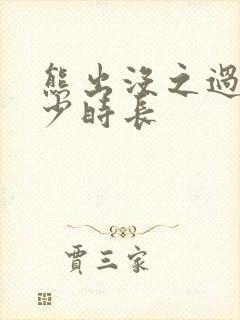 熊出没之過
少時長
賈三家